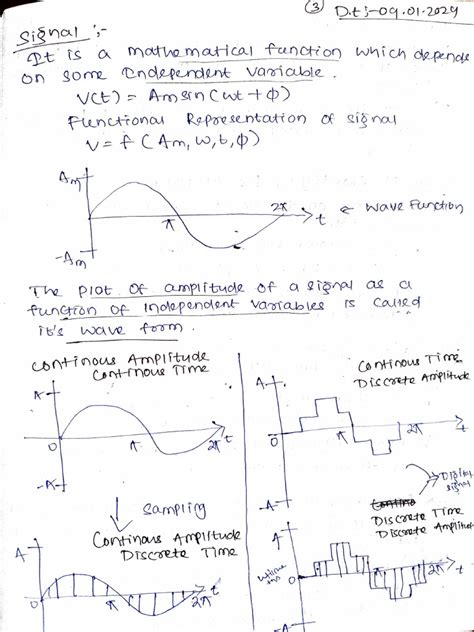 ③ D.t:-09.01.2024
Signal :-
It is a mathematical function which depends
on some Independent variable.
V(t) = Am sin (wt + ϕ)
Functional Representation of signal
V = f (Am, w, t, ϕ)
Am
π
2π
t
← Wave Function
-Am
The plot of amplitude of a signal as a
function of Independent variables is called
it's wave form.
Continous Amplitude
Continous Time
A
0
π
2π
t
-A
Sampling
Continous Amplitude
Discrete Time
A
0
π
2π
t
Continous Time
Discrete Amplitude
A
0
π
2π
t
-A
Digital
signal
Discrete Time
Discrete Amplitude
A
0
π
2π
t
-A